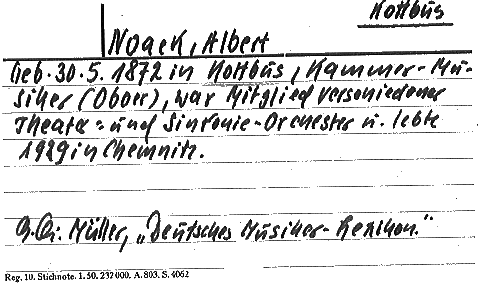 Kottbus
Noack, Albert
Geb. 30. 5. 1872 in Kottbus, Kammer-Mu-
siker (Oboer), war Mitglied verschiedener
Theater- und Sinfonie-Orchester u. lebte
1929 in Chemnitz.
Müller, „Deutsches Musiker-Lexikon."
Reg. 10. Stichnote. 1. 50. 232000. A. 803. S. 4062